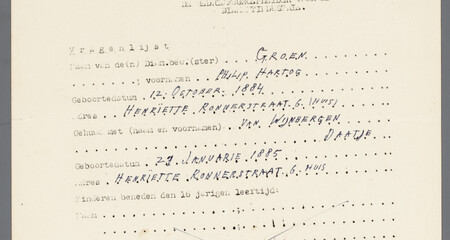 Vragenlijst
Naam van de(n) Diam.bew.(ster) GROEN.
voornamen PHILIP, HARTOG
Geboortedatum 12. OCTOBER. 1884
Adres HENRIËTTE RONNERSTRAAT. 6. (HUIS)
Gehuwd met (naam en voornamen) VAN WIJNBERGEN
DAATJE
Geboortedatum 27 JANUARIE 1885
Adres HENRIETTE RONNERSTRAAT. 6. HUIS
Kinderen beneden den 16 jarigen leeftijd:
Naam